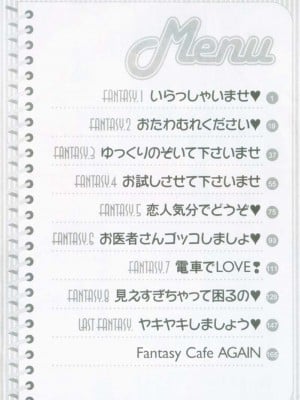 Menu
FANTASY.1 いらっしゃいませ♥ 1
FANTASY.2 おたわむれください♥ 19
FANTASY.3 ゆっくりのぞいて下さいませ 37
FANTASY.4 お試しさせて下さいませ 55
FANTASY.5 恋人気分でどうぞ♥ 75
FANTASY.6 お医者さんゴッコしましょ♥ 93
FANTASY.7 電車でLOVE❢ 111
FANTASY.8 見えすぎちゃって困るの♥ 129
LAST FANTASY. ヤキヤキしましょう♥ 147
Fantasy Cafe AGAIN 165